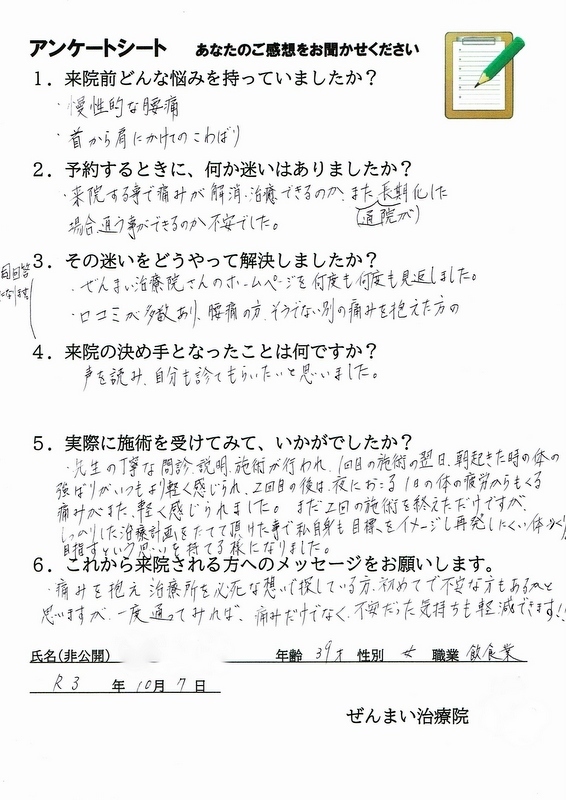 アンケートシート あなたのご感想をお聞かせください
1．来院前どんな悩みを持っていましたか？
・慢性的な腰痛
・首から肩にかけてのこわばり
2．予約するときに、何か迷いはありましたか？
・来院する事で痛みが解消・治癒できるのか、また長期化した
(通院が)
場合通う事ができるのか不安でした。
3．その迷いをどうやって解決しましたか？
・ぜんまい治療院さんのホームページを何度も何度も見返しました。
・口コミが多数あり、腰痛の方、そうでない別の痛みを抱えた方の
回答
になります
4．来院の決め手となったことは何ですか？
声を読み、自分も診てもらいたいと思いました。
5．実際に施術を受けてみて、いかがでしたか？
・先生の丁寧な問診、説明、施術が行われ、1回目の施術の翌日、朝起きた時の体の
強ばりがいつもより軽く感じられ、2回目の後は、夜におこる1日の体の疲労からもくる
痛みがまた、軽く感じられました。まだ2回の施術を終えただけですが、
しっかりした治療計画をたてて頂けた事で私自身も目標をイメージし再発しにくい体づくり
目指すという思いを持てる様になりました。
6．これから来院される方へのメッセージをお願いします。
・痛みを抱え治療所を必死な想いで探している方、初めてで不安な方もあるかと
思いますが、一度通ってみれば、痛みだけでなく、不安だった気持ちも軽減できます!!
氏名(非公開) 年齢 39才 性別 女 職業 飲食業
R3 年 10月 7日
ぜんまい治療院